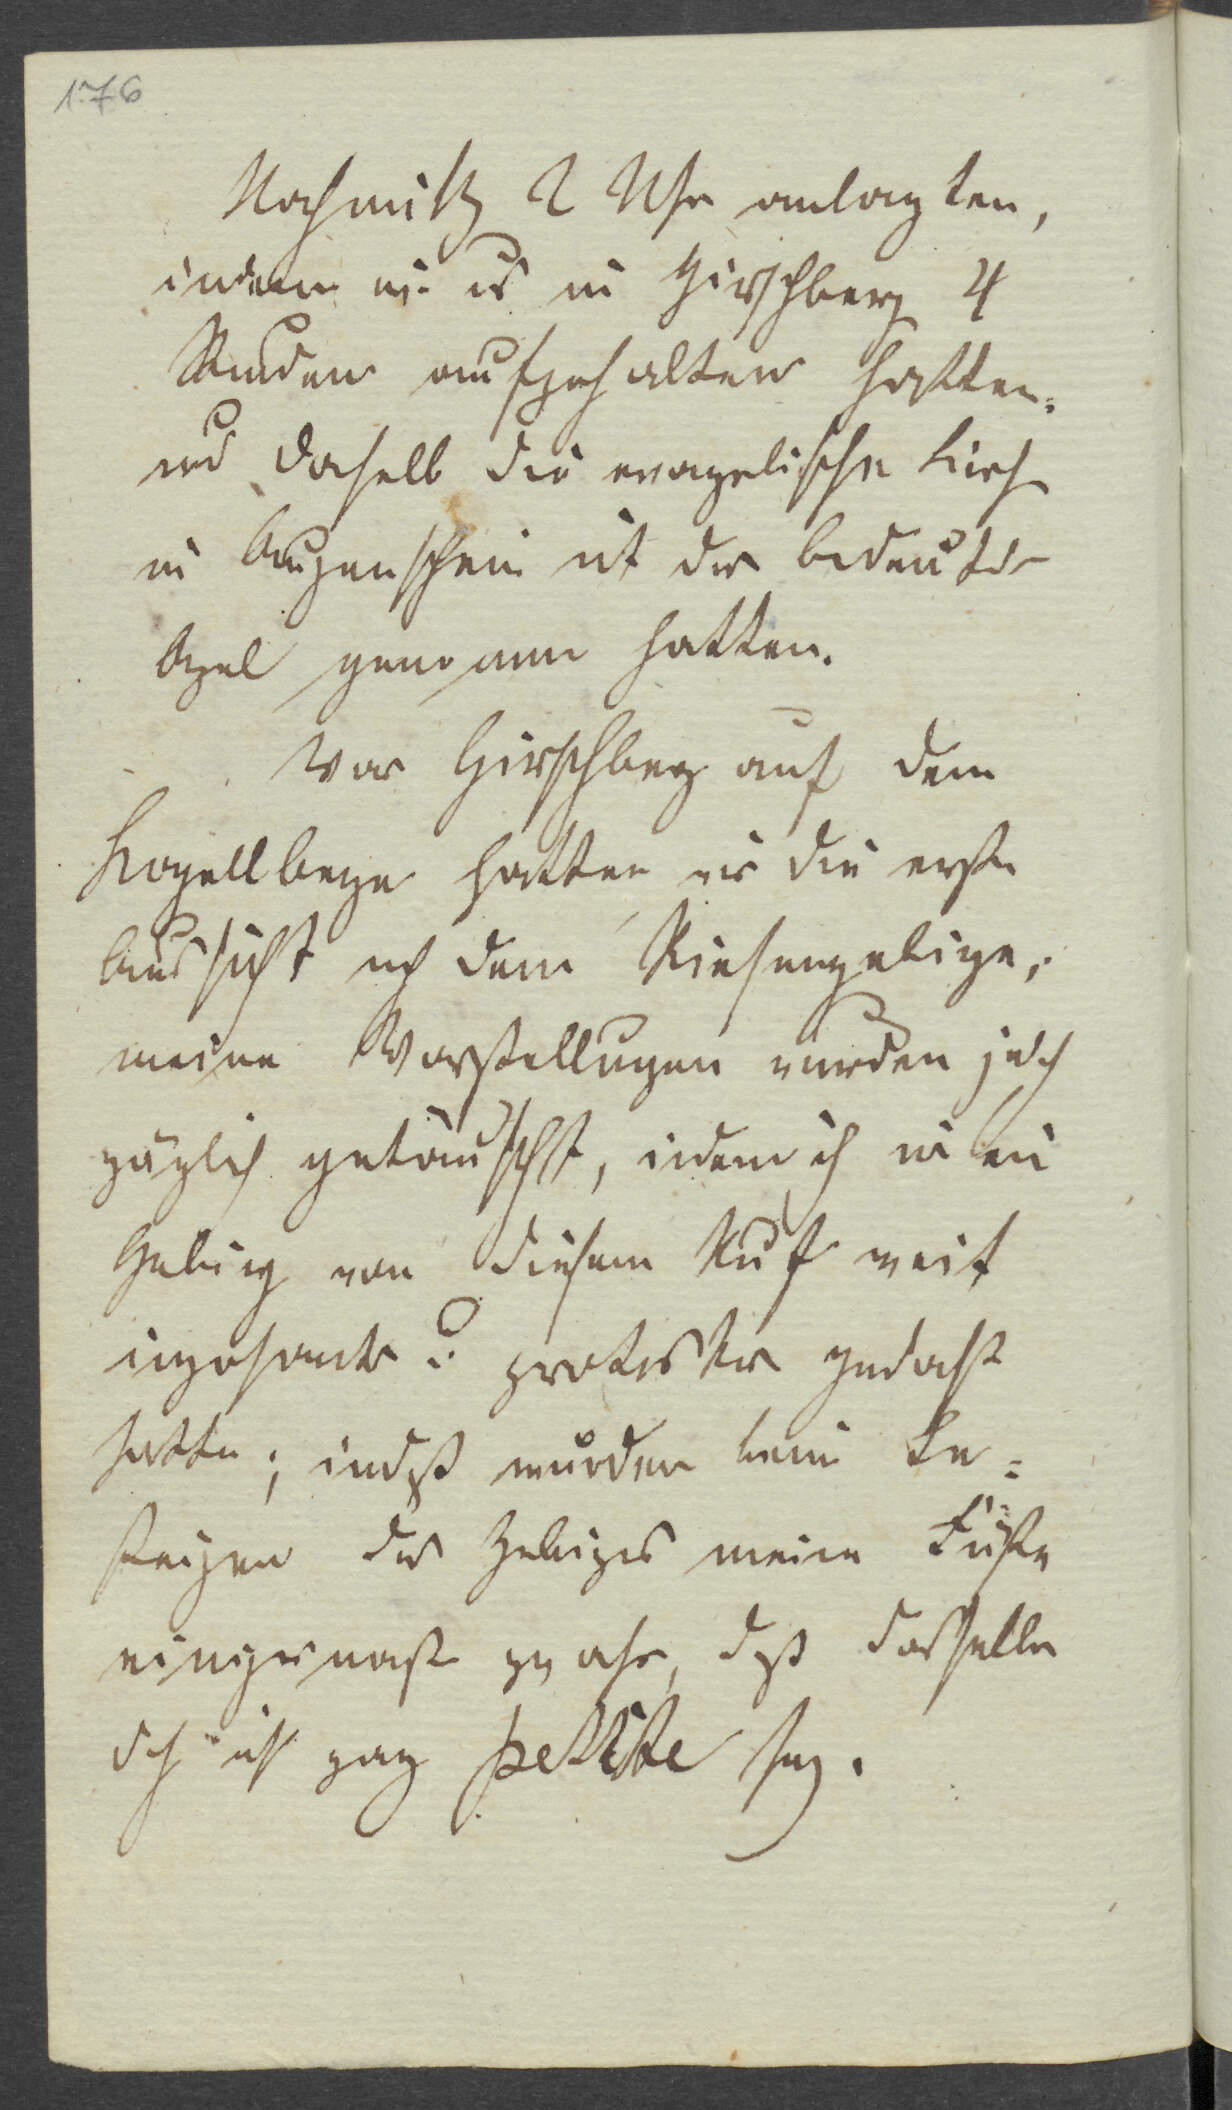 176
Nachmittg 2 Uhr anlagten,
indem wir us in Hirschberg 4
Stunden aufgehalten hatten
und daselb die evagelische Kirch
in Augenschein mit der bedeutde
Ogel genomm hatten.
Vor Hirschberg auf dem
Kapellberge hatten wir die erste
Aussicht nch dem Riesengebirge,
meine Vorstellugen wurden jdch
gäzlich getäuscht, indem ich mir ein
Gebirg von diesem Ruf weit
imposanter u. grotesker gedacht
hatte; indß wurden beim Be=
steigen des Gebirges meine Füße
einigermaß gwahr, dß dasselbe
dch nicht ganz petitte sey.